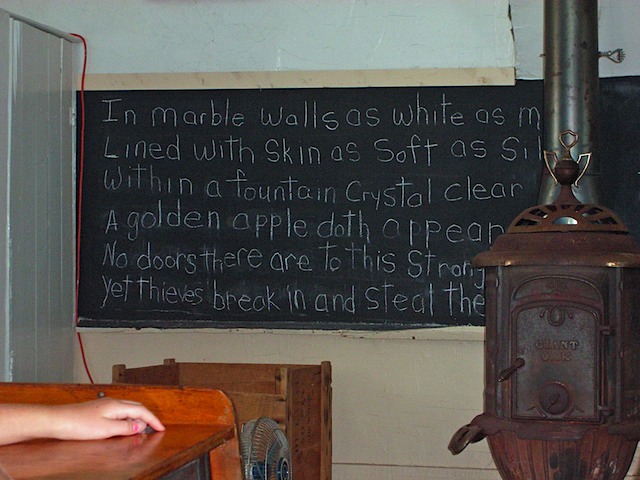 In marble walls as white as m
Lined with Skin as Soft as Si
Within a fountain Crystal clear
A golden apple doth appear
No doors there are to this Strong
Yet thieves break in and Steal the
GIANT